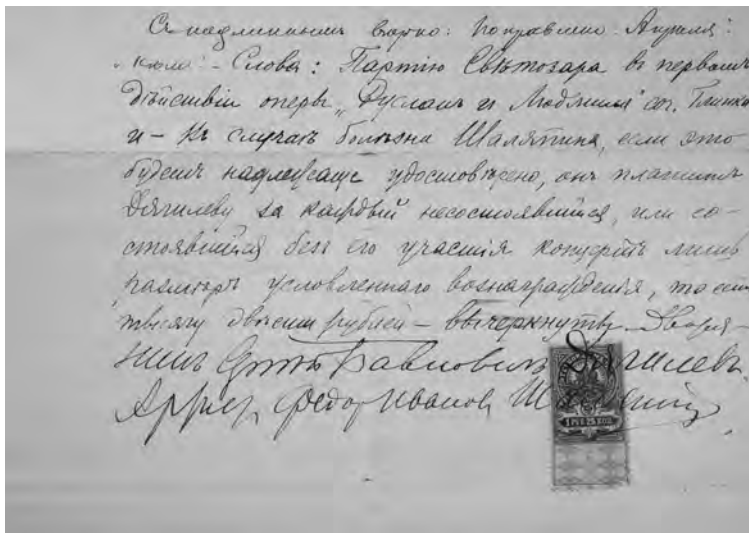 Съ подлиннымъ вѣрно: Поправлено: Апрѣля:
Слова: Партію Свѣтозара въ первомъ
дѣйствіи оперы „Русланъ и Людмила" соч. Глинки
и - Въ случаѣ болѣзни Шаляпина, если это
будетъ надлежаще удостовѣрено, онъ платитъ
Дягилеву за каждый несостоявшійся, или со-
стоявшійся безъ его участія концертъ лишь
размѣръ условленнаго вознагражденія, то есть
тысячу двѣсти рублей - вычеркнуты. Дворя-
нинъ Сергѣй Павловичъ Дягилевъ
Артистъ Федоръ Ивановъ Шаляпинъ
1 РУБ. 25 КОП.